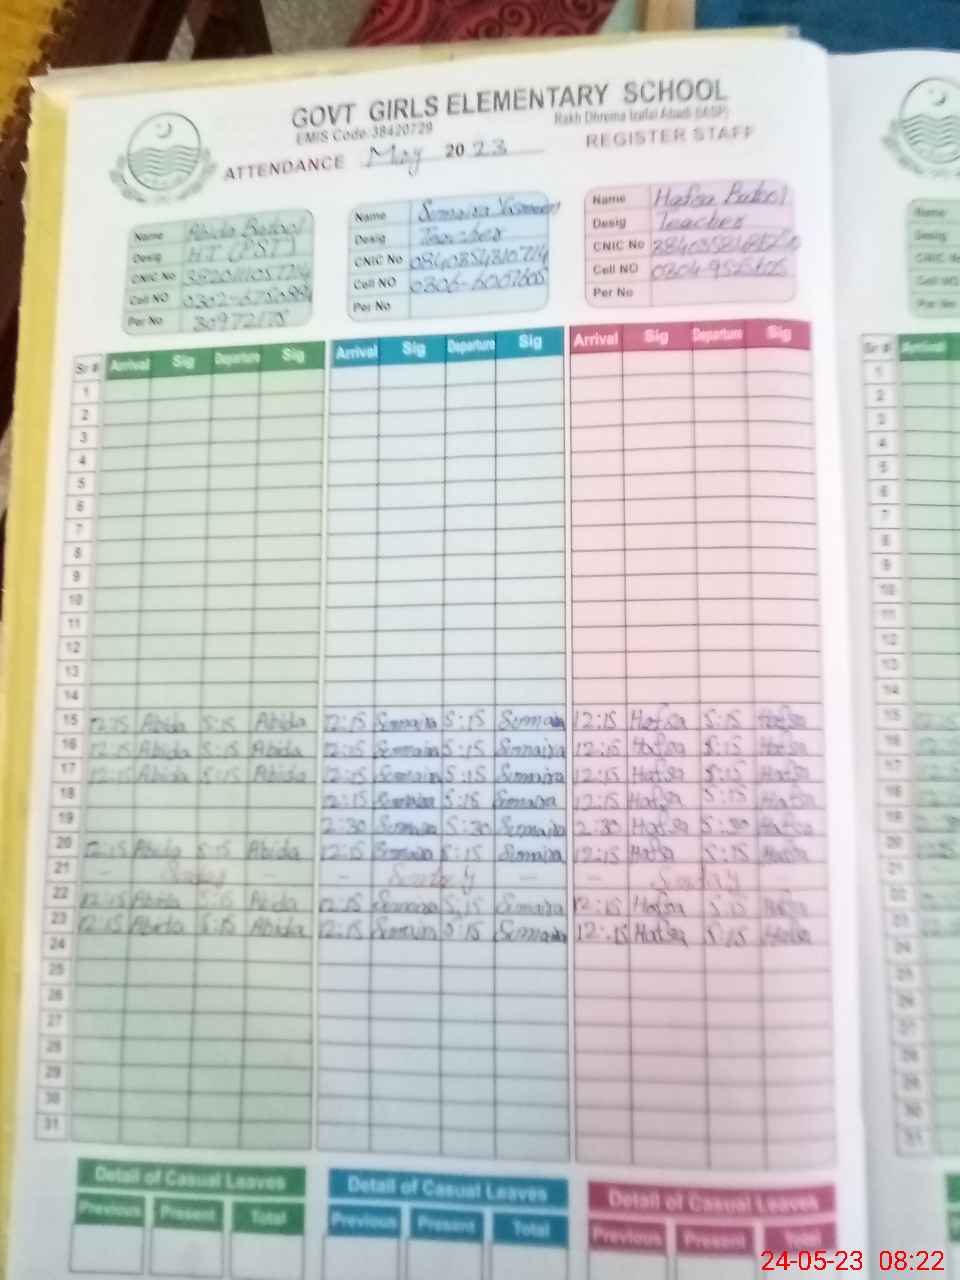 GOVT GIRLS ELEMENTARY SCHOOL
EMIS Code: 38420729 Rakh Dhrema Izafai Abadi (IASP)
ATTENDANCE May 2023 REGISTER STAFF
Name Abida Batool Name Sumaira Yasmeen Name Hafsa Batool
Desig HT (PST) Desig Teacher Desig Teacher
CNIC No CNIC No CNIC No
Cell NO Cell NO 0306-6007605 Cell NO
Per No 30972175 Per No Per No
Sr # Arrival Sig Departure Sig Arrival Sig Departure Sig Arrival Sig Departure Sig Sr # Arrival
1 1
2 2
3 3
4 4
5 5
6 6
7 7
8 8
9 9
10 10
11 11
12 12
13 13
14 14
15 12:15 Abida 5:15 Abida 12:15 Sumaira 5:15 Sumaira 12:15 Hafsa 5:15 Hafsa 15
16 12:15 Abida 5:15 Abida 12:15 Sumaira 5:15 Sumaira 12:15 Hafsa 5:15 Hafsa 16
17 12:15 Abida 5:15 Abida 12:15 Sumaira 5:15 Sumaira 12:15 Hafsa 5:15 Hafsa 17
18 12:15 Sumaira 5:15 Sumaira 12:15 Hafsa 5:15 Hafsa 18
19 2:30 Sumaira 5:30 Sumaira 2:30 Hafsa 5:30 Hafsa 19
20 12:15 Abida 5:15 Abida 12:15 Sumaira 5:15 Sumaira 12:15 Hafsa 5:15 Hafsa 20
21 – Sunday – – Sunday – – Sunday – 21
22 12:15 Abida 5:15 Abida 12:15 Sumaira 5:15 Sumaira 12:15 Hafsa 5:15 Hafsa 22
23 12:15 Abida 5:15 Abida 12:15 Sumaira 5:15 Sumaira 12:15 Hafsa 5:15 Hafsa 23
24 24
25 25
26 26
27 27
28 28
29 29
30 30
31 31
Detail of Casual Leaves Detail of Casual Leaves Detail of Casual Leaves
Previous Present Total Previous Present Total Previous Present Total
24-05-23 08:22